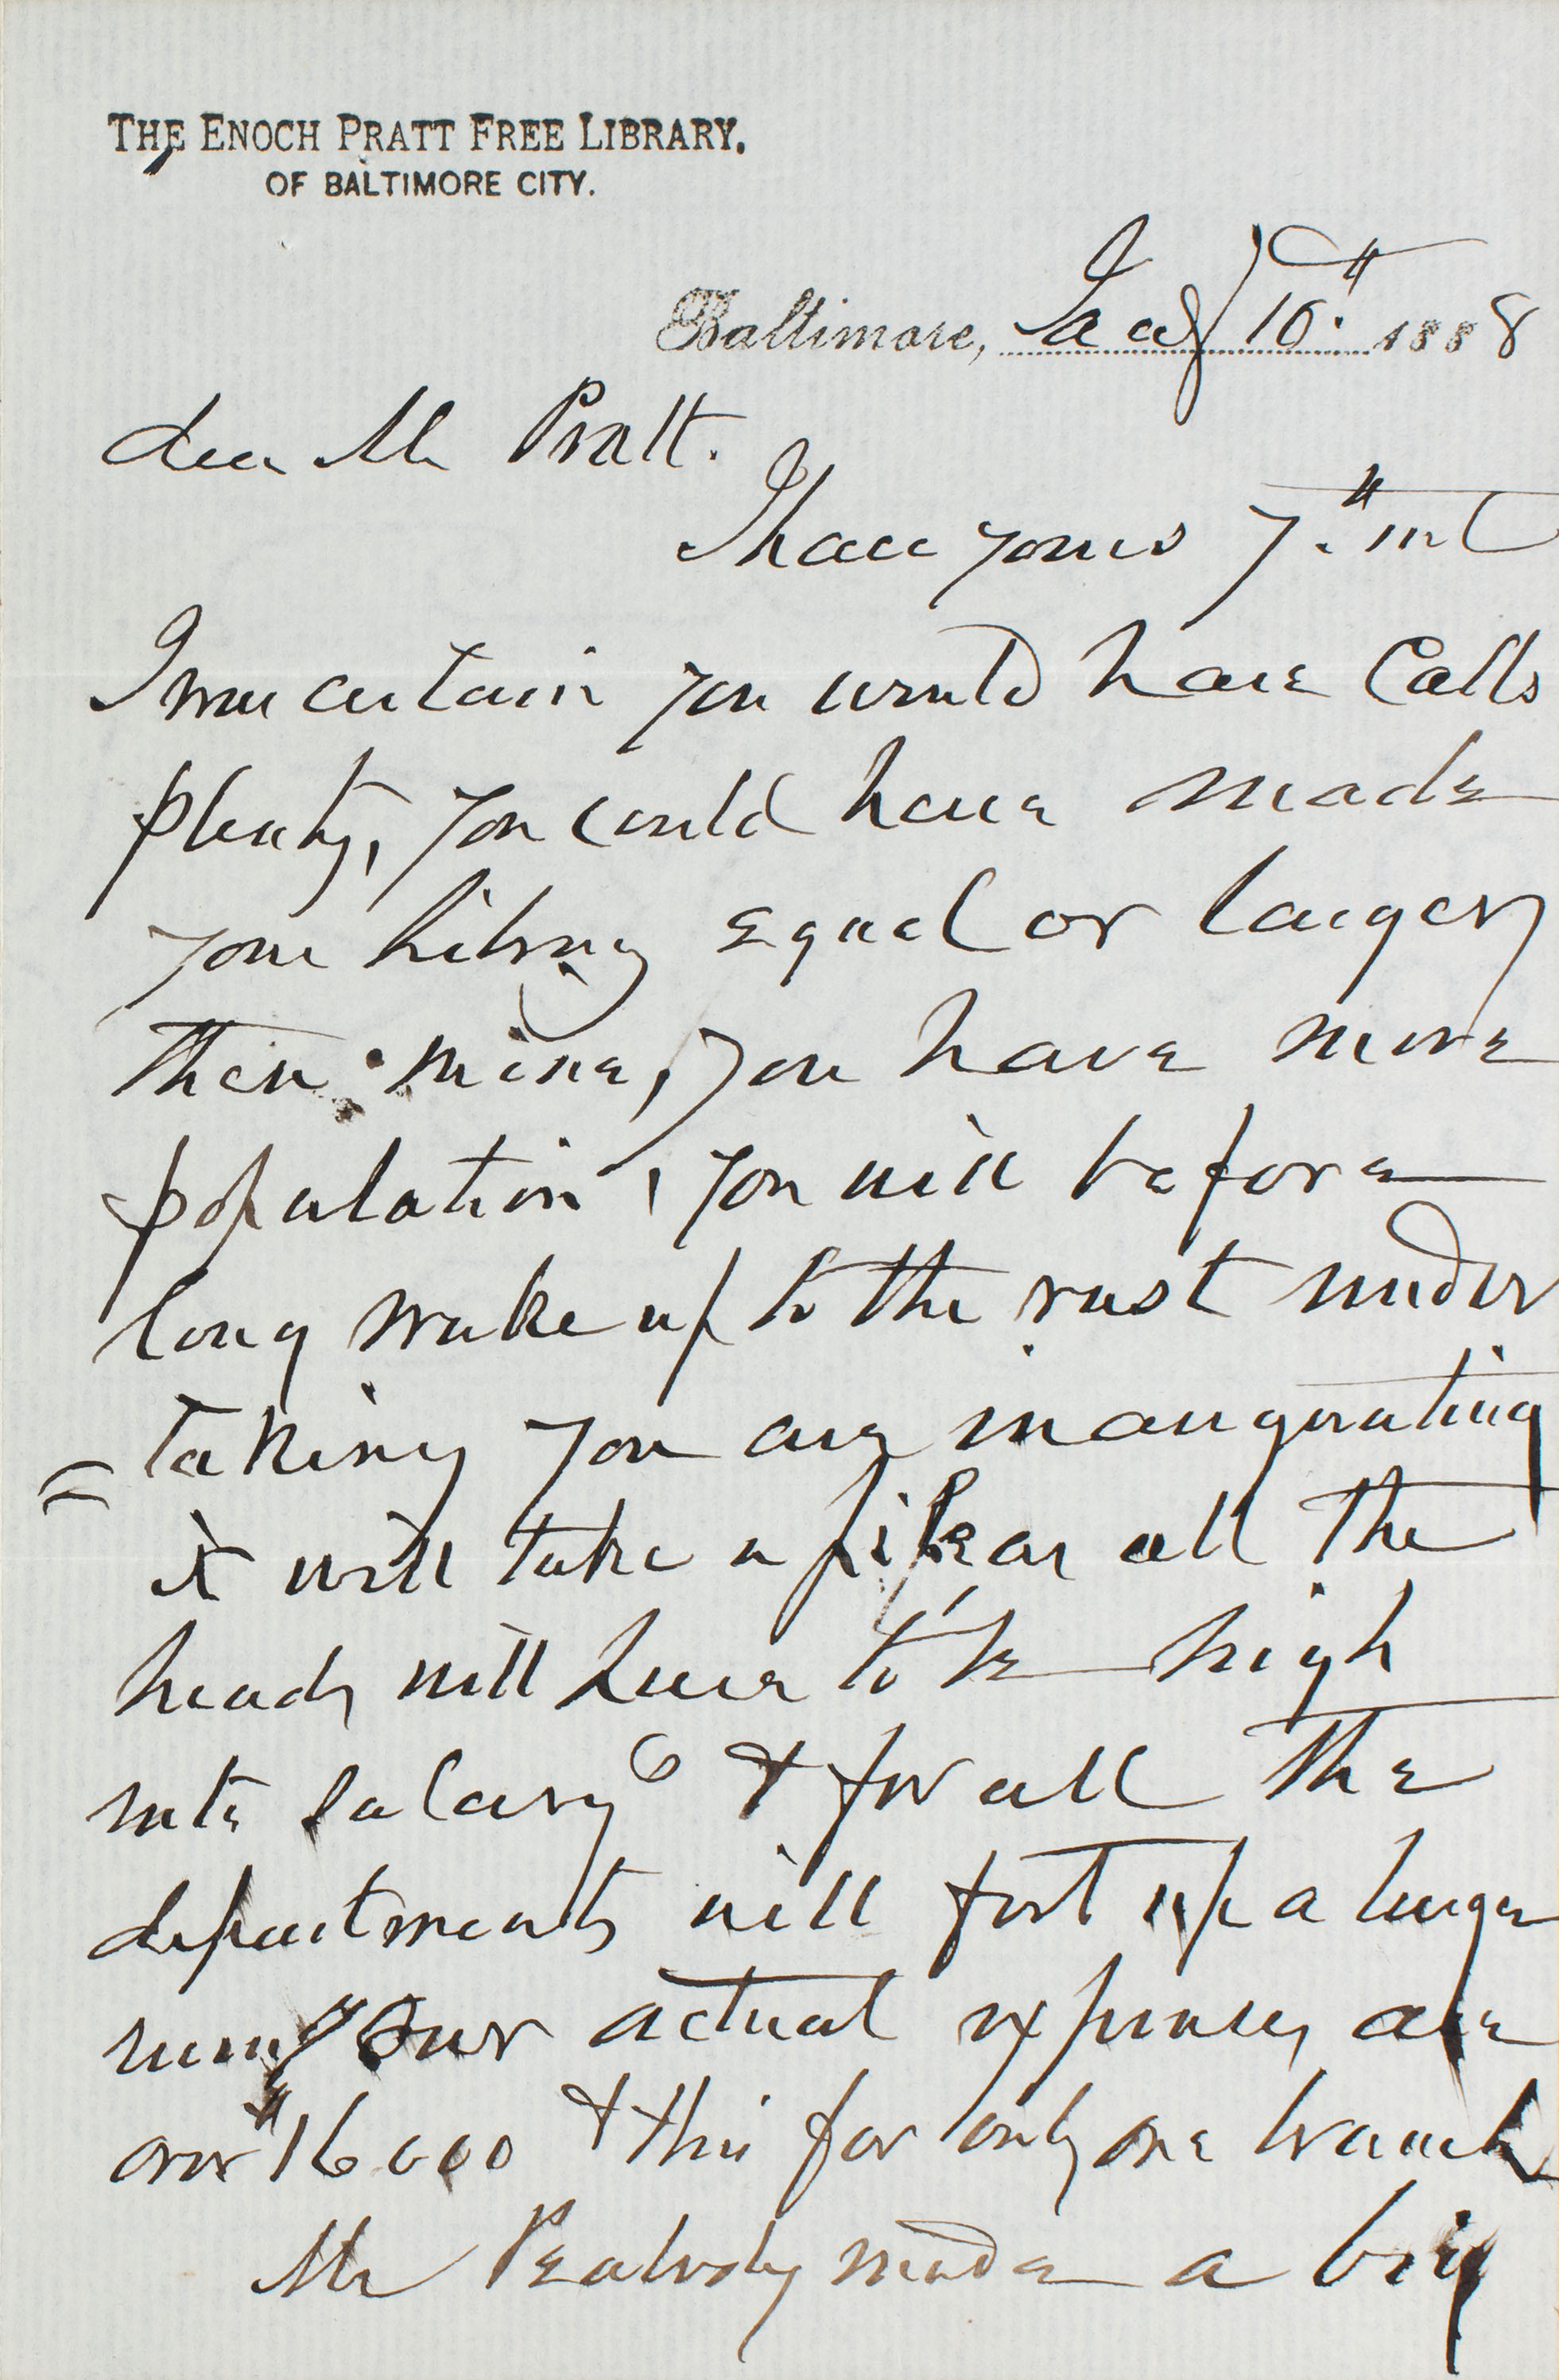 THE ENOCH PRATT FREE LIBRARY.
OF BALTIMORE CITY.
Baltimore, 10th 1888
dear Mr Pratt.
I have yours 7th inst
I was certain you would have Calls
plenty, you could have made
your Library equal or larger
then mine, you have more
population, you will before
long wake up to the vast under
= taking you are inaugurating
it will take a all the
heads will have to be high
rate salary & for all the
departments will foot up a large
sum, Our actual expenses are
over $16000 & this for only one branch
Mr Peabody made a big